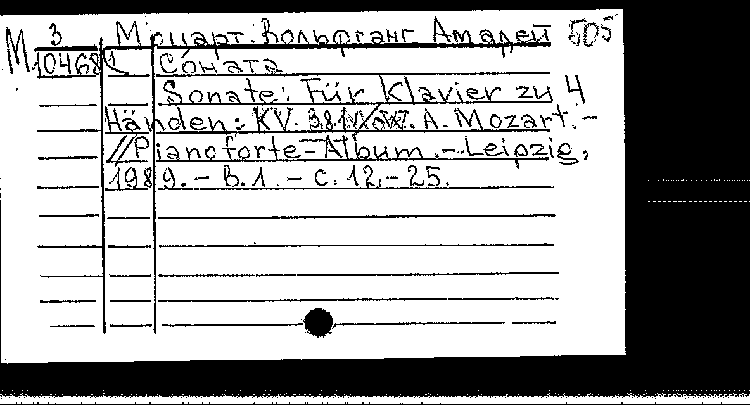 М 3 Моцарт Вольфганг Амадей 505
10468 Соната
Sonate: Für Klavier zu 4
Händen: KV. 381 / W. A. Mozart. –
// Pianoforte-Album. – Leipzig,
1989. – B. 1. – C. 12.– 25.